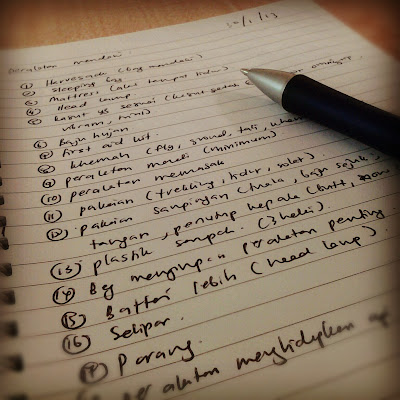 Peralatan mendaki.
① Haversack (beg mendaki)
② sleeping bag
③ Mattress (alas tempat tidur)
④ Head lamp
⑤ kasut yg sesuai (kasut
vibram,
⑥ Baju hujan
⑦ first aid kit.
⑧ khemah (fly, ground, tali,
⑨ peralatan mandi (minimum)
⑩ peralatan memasak
⑪ pakaian (trekking, tidur, solat).
⑫ pakaian sampingan (baju sejuk,
tangan, penutup kepala (buff,
⑬ plastik sampah. (3 helai).
⑭ Bag menyimpan peralatan penting.
⑮ Batteri lebih (head lamp).
⑯ Selipar.
⑰ Parang.
peralatan menghidupkan api